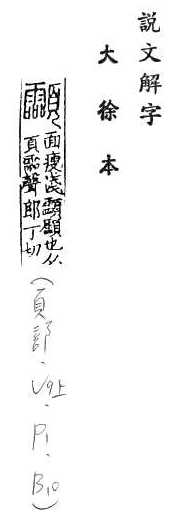 説文解字
大徐本
面瘦淺𩖊𩖊也从
頁霝聲郎丁切
(頁部、V9上、P1、B10)